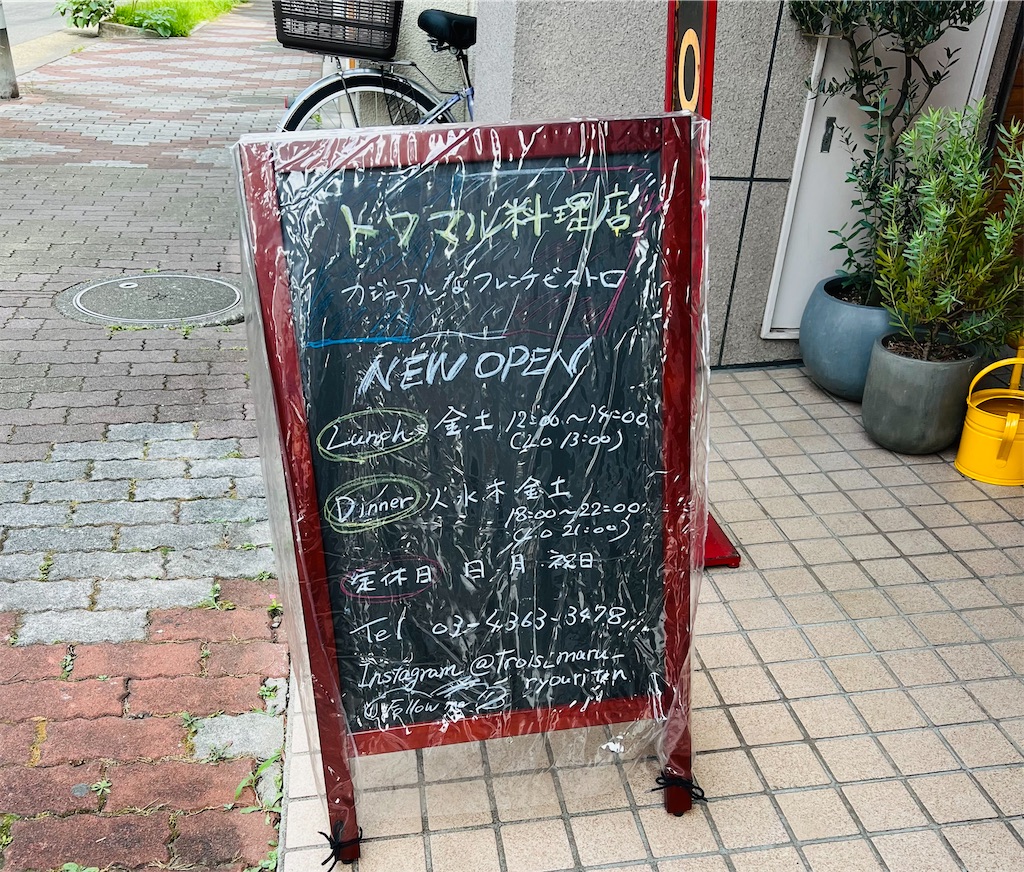 トワマル料理店
カジュアルなフレンチビストロ
NEW OPEN
Lunch 金土 12:00~14:00
(L.o 13:00)
Dinner 火水木金土
18:00~22:00
(L.o 21:00)
定休日 日・月・祝日
Tel 03-4363-3478
Instagram @Trois_maru_
ryouriten
Follow me